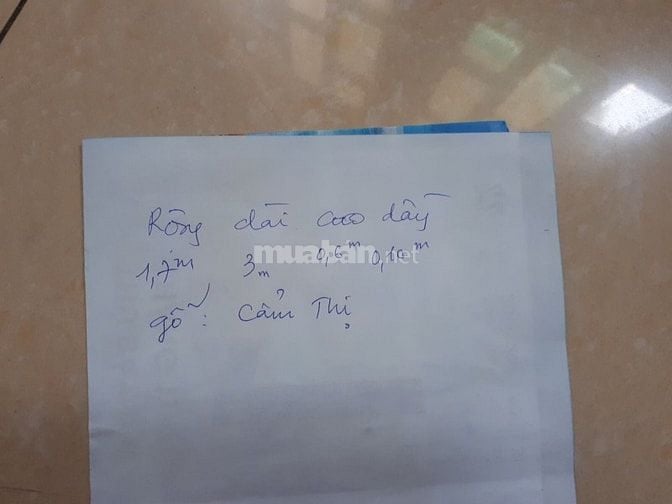 Rộng dài cao dầy
1,7m 3m 0,6m 0,10m
muaban.net
gỗ: Cẩm Thị